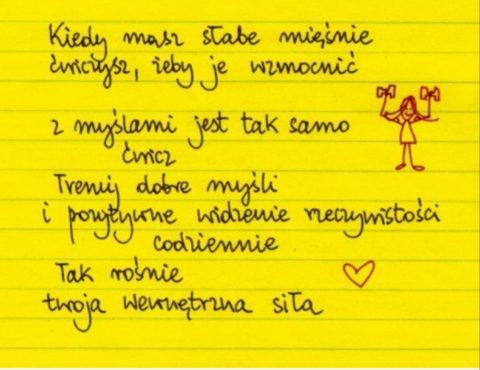 Kiedy masz słabe mięśnie
ćwiczysz, żeby je wzmocnić
z myślami jest tak samo
ćwicz
Trenuj dobre myśli
i pozytywne widzenie rzeczywistości
codziennie
Tak rośnie
twoja wewnętrzna siła